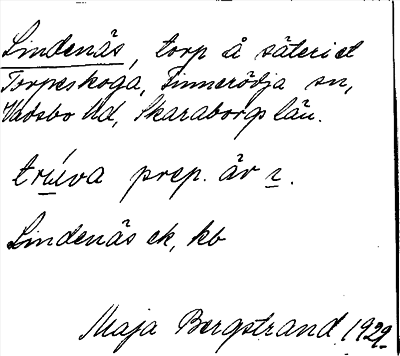 Lindenäs, torp å säteriet
Torpeskoga, Finnerödja sn,
Vadsbo hd, Skaraborgs län.
trúva prep. är ₂.
Lindenäs ek, kb
Maja Bergstrand 1929.